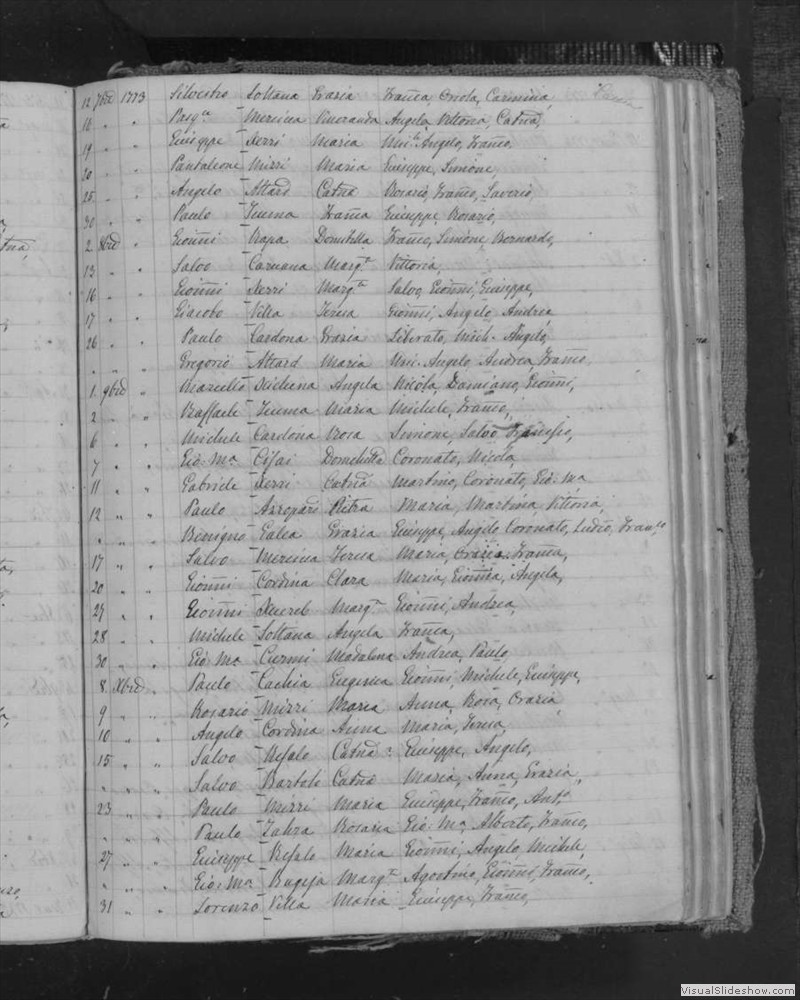 12 7bre 1773 Silvestro Soltana Grazia Franca, Oriola, Carmina,
16 " " Pasq.le Mercieca Veneranda Angela, Vittoria, Catna,
19 " " Giuseppe Xerri Maria Mic.le Angelo, Franco,
20 " " Pantaleone Mizzi Maria Giuseppe, Simone,
25 " " Angelo Attard Catna Rosario, Franco, Saverio,
30 " " Paulo Teuma Franca Giuseppe, Rosario,
2 8bre " Gionni Rapa Domitilla Franco, Simone, Bernardo,
13 " " Salvo Caruana Marg.ta Vittoria,
16 " " Gionni Xerri Marg.ta Salvo, Gionni, Giuseppe,
17 " " Giacobo Villa Teresa Gionni, Angelo, Andrea
26 " " Paulo Cardona Grazia Liberato, Mich. Angelo,
" " " Gregorio Attard Maria Mic. Angelo, Andrea, Franco
1 9bre " Marcello Angela Nicola, Damiano, Gionni,
2 " " Raffaele Teuma Maria Michele, Franco,
6 " " Michele Cardona Rosa Simone, Salvo,
7 " " Gio: Ma Domitilla Coronato, Nicola,
11 " " Gabriele Xerri Catna Martino, Coronato, Gio: Ma
12 " " Paulo Azzopardi Pietra Maria, Martina, Vittoria,
" " " Benigno Galea Grazia Giuseppe, Angelo, Coronato, Franco
17 " " Salvo Mercieca Teresa Maria, Grazia, Franca,
20 " " Gionni Cordina Clara Maria, Gionna, Angela,
27 " " Gionni Xuereb Marg.ta Gionni, Andrea,
28 " " Michele Soltana Angela Franca,
30 " " Gio: Ma Curmi Madalena Andrea, Paulo,
8 Xbre " Paulo Cachia Eugenia Gionni, Michele, Giuseppe,
9 " " Rosario Mizzi Maria Anna, Rosa, Grazia,
10 " " Angelo Cordina Anna Maria, Teresa,
15 " " Salvo Refalo Catna Giuseppe, Angelo,
" " " Salvo Bartoli Catna Maria, Anna, Grazia,
23 " " Paulo Mizzi Maria Giuseppe, Franco, Ant.o
" " " Paulo Zahra Rosaria Gio: Ma, Alberto, Franco,
27 " " Giuseppe Refalo Maria Gionni, Angelo, Michele,
" " " Gio: Ma Bugeja Marg.ta Agostino, Gionni, Franco,
31 " " Lorenzo Villa Maria Giuseppe, Franco,
VisualSlideshow.com